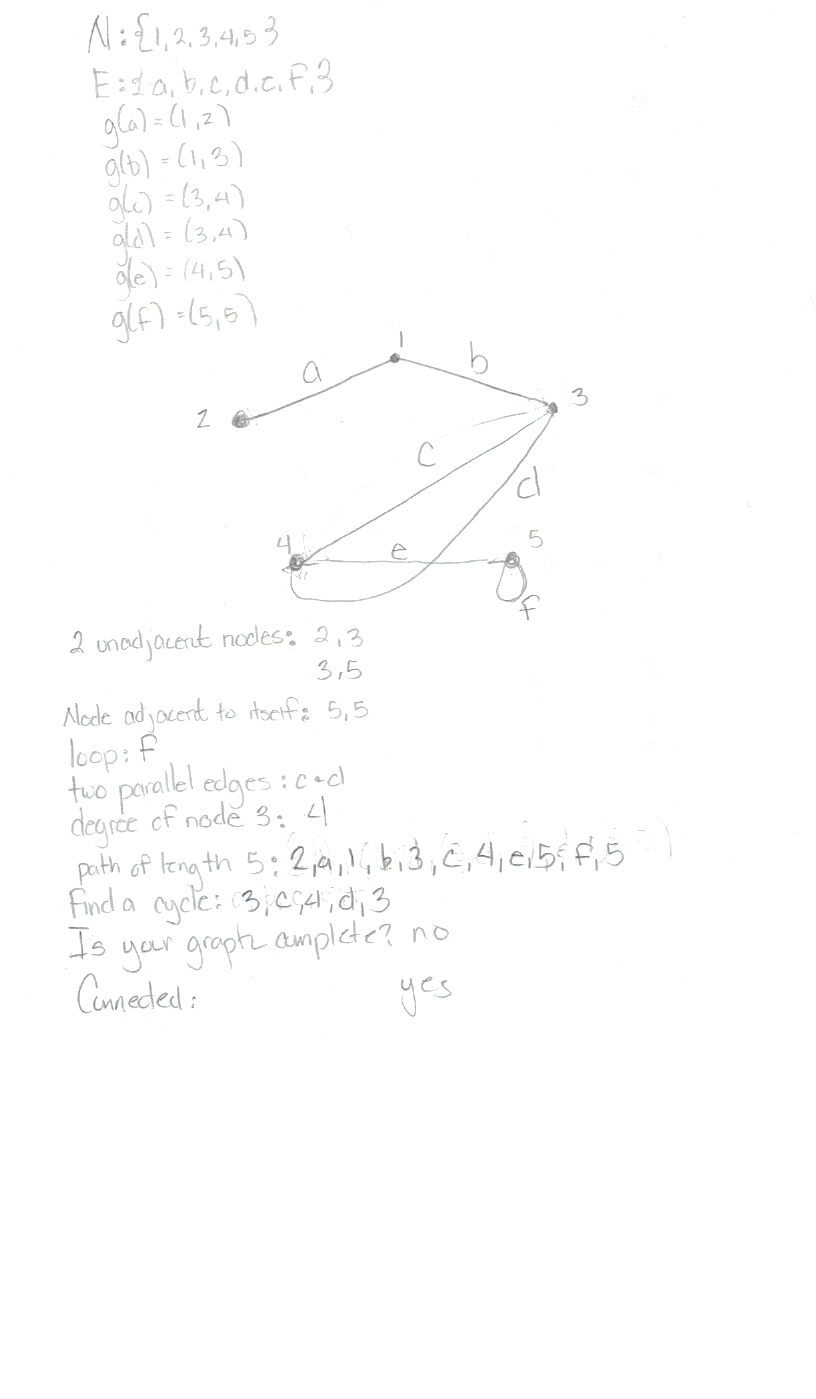 N:{1,2,3,4,5}
E:{a,b,c,d,e,f,}
g(a)=(1,2)
g(b)=(1,3)
g(c)=(3,4)
g(d)=(3,4)
g(e)=(4,5)
g(f)=(5,5)
1
a
b
2
3
c
d
4
e
5
f
2 unadjacent nodes: 2,3
3,5
Node adjacent to itself: 5,5
loop: f
two parallel edges: c+d
degree of node 3: 4
path of length 5: 2,a,1,b,3,c,4,e,5,f,5
Find a cycle: 3,c,4,d,3
Is your graph complete? no
Connected: yes